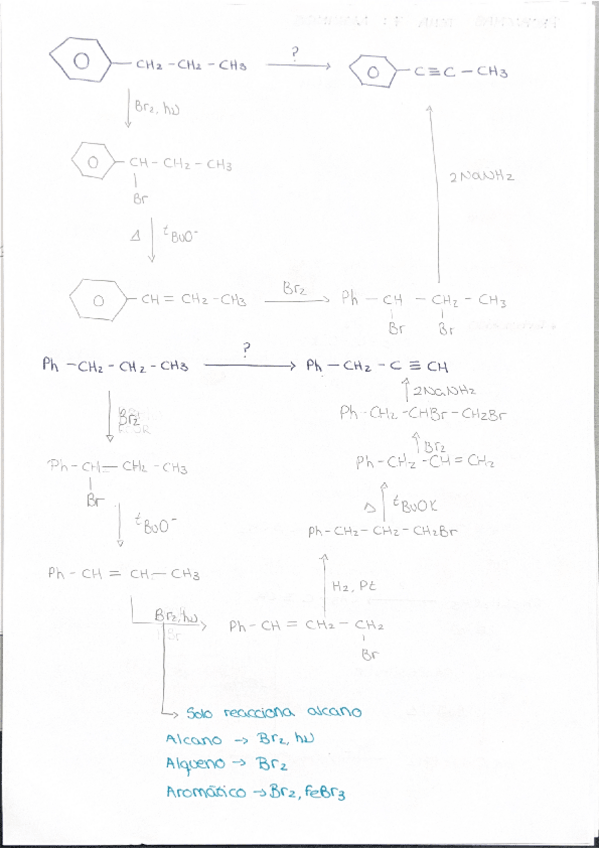 CH2 - CH2 - CH3 ? C ≡ C - CH3
Br2, hν
CH - CH2 - CH3
Br
2 NaNH2
Δ tBuO-
CH = CH2 - CH3 Br2 Ph - CH - CH2 - CH3
Br Br
Ph - CH2 - CH2 - CH3 ? Ph - CH2 - C ≡ CH
2NaNH2
Br2 Ph-CH2 - CHBr - CH2Br
Br2
Ph-CH - CH2 - CH3 Ph-CH2 - CH = CH2
Br
Δ tBuOK
tBuO-
Ph-CH2-CH2-CH2Br
Ph - CH = CH - CH3
H2, Pt
Br2, hν Ph - CH = CH2 - CH2
Br
Solo reacciona alcano
Alcano → Br2, hν
Alqueno → Br2
Aromático → Br2, FeBr3